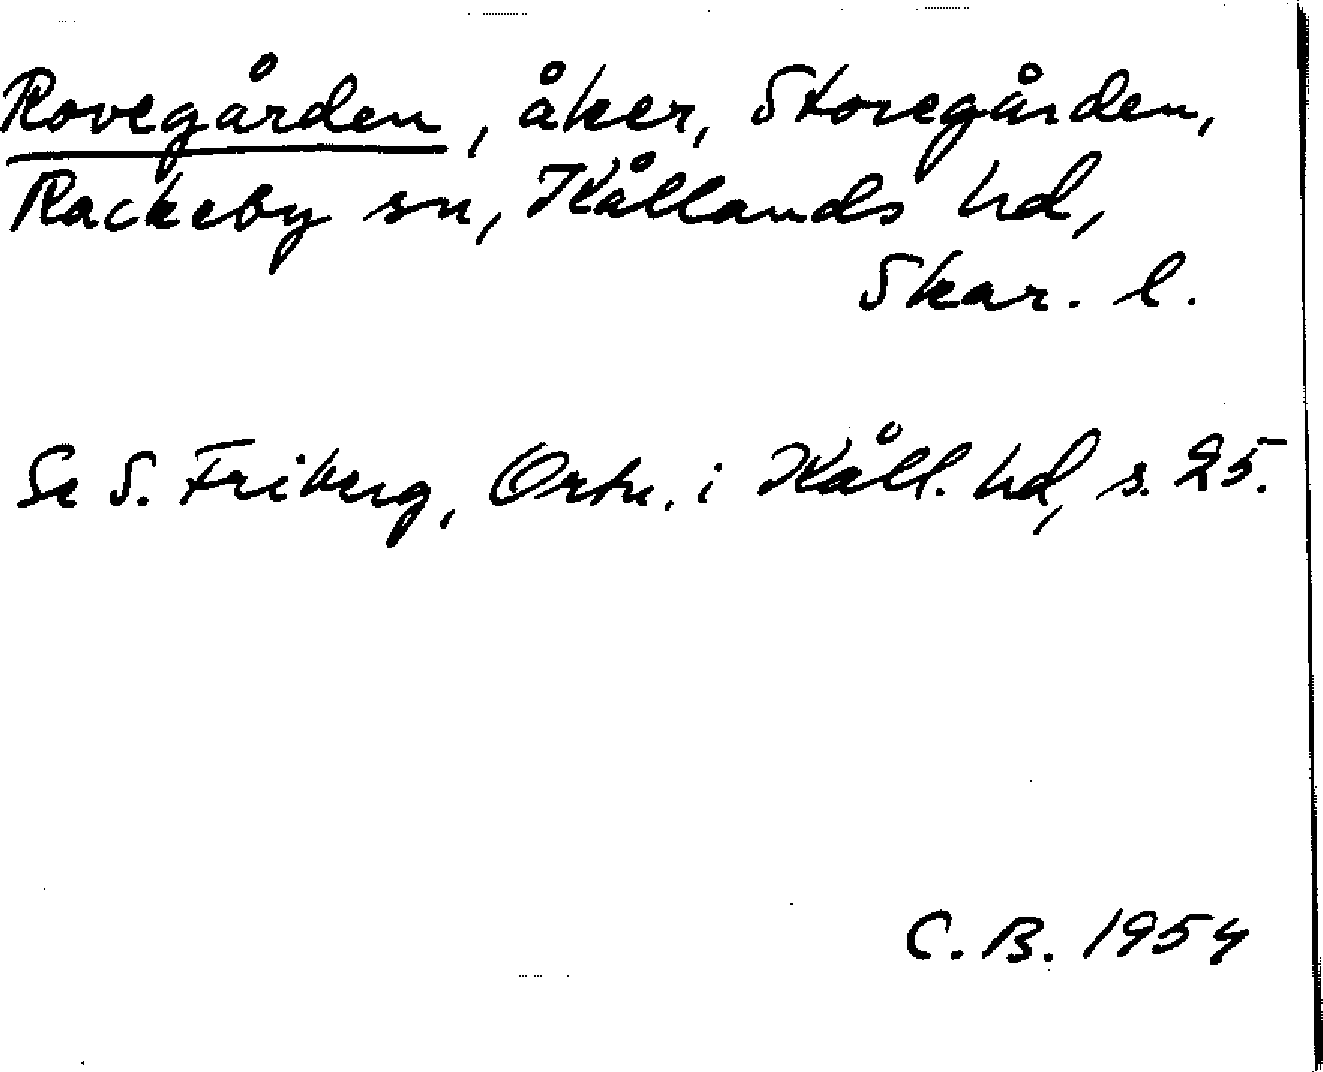 Rovegården, åker, Storegården,
Rackeby sn, Kållands hd,
Skar. l.
Se S. Friberg, Ortn. i Kåll. hd, s. 25.
C. B. 1954